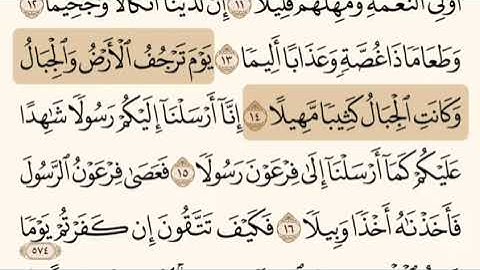 أُولِي ٱلنَّعۡمَةِ وَمَهِّلۡهُمۡ قَلِيلًا ١١ إِنَّ لَدَيۡنَآ أَنكَالٗا وَجَحِيمٗا ١٢
وَطَعَامٗا ذَا غُصَّةٖ وَعَذَابًا أَلِيمٗا ١٣ يَوۡمَ تَرۡجُفُ ٱلۡأَرۡضُ وَٱلۡجِبَالُ
وَكَانَتِ ٱلۡجِبَالُ كَثِيبٗا مَّهِيلًا ١٤ إِنَّآ أَرۡسَلۡنَآ إِلَيۡكُمۡ رَسُولٗا شَٰهِدًا
عَلَيۡكُمۡ كَمَآ أَرۡسَلۡنَآ إِلَىٰ فِرۡعَوۡنَ رَسُولٗا ١٥ فَعَصَىٰ فِرۡعَوۡنُ ٱلرَّسُولَ
فَأَخَذۡنَٰهُ أَخۡذٗا وَبِيلٗا ١٦ فَكَيۡفَ تَتَّقُونَ إِن كَفَرۡتُمۡ يَوۡمٗا
٥٧٤